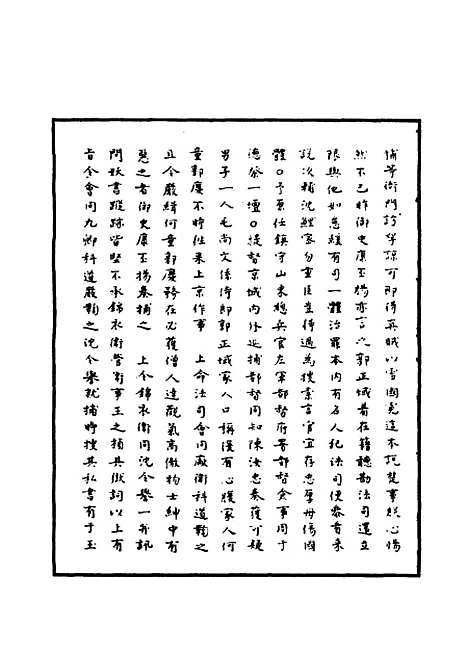 捕等衙門訪拏深可即得真賊以雪國冤這本說楚事朕心惕
然不已昨御史康丕揚亦言之郭正域着在籍聽勘法司還立
限與他如怠緩有司一體治罪本内有名人犯法司便参看来
說次輔沈鯉家勿重臣查得過為搜索言官宜存忠厚毋傷國
體○予原任鎮守山東總兵官左軍都督府署都督僉事周于
德祭一壇○提督京城内外巡捕都督同知陳汝忠奏獲可疑
男子一人毛尚文係侍郎郭正域家人口稱復有心腹家人何
童郭慶不時往来上京作事　上命法司會同廠衛科道鞫之
且令嚴緝何童郭慶務在必獲僧人達觀氣高傲物士紳中有
惡之者御史康丕揚奏捕之　上令錦衣衛同沈令譽一并訊
問妖書蹤跡皆堅不承錦衣衛管衛事王之楨具獄詞以上有
旨令會同九卿科道嚴鞫之沈令譽就捕時搜其私書有于玉